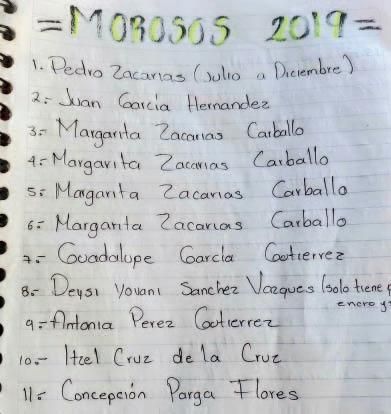 =MOROSOS 2019=
1. Pedro Zacarias (Julio a Diciembre)
2.- Juan Garcia Hernandez
3.- Margarita Zacarias Carballo
4.- Margarita Zacarias Carballo
5.- Margarita Zacarias Carballo
6.- Margarita Zacarias Carballo
7.- Guadalupe Garcia Gutierrez
8.- Deysi Yovani Sanchez Vazques (solo tiene
enero y
9.- Antonia Perez Gutierrez
10.- Itzel Cruz de la Cruz
11.- Concepción Parga Flores